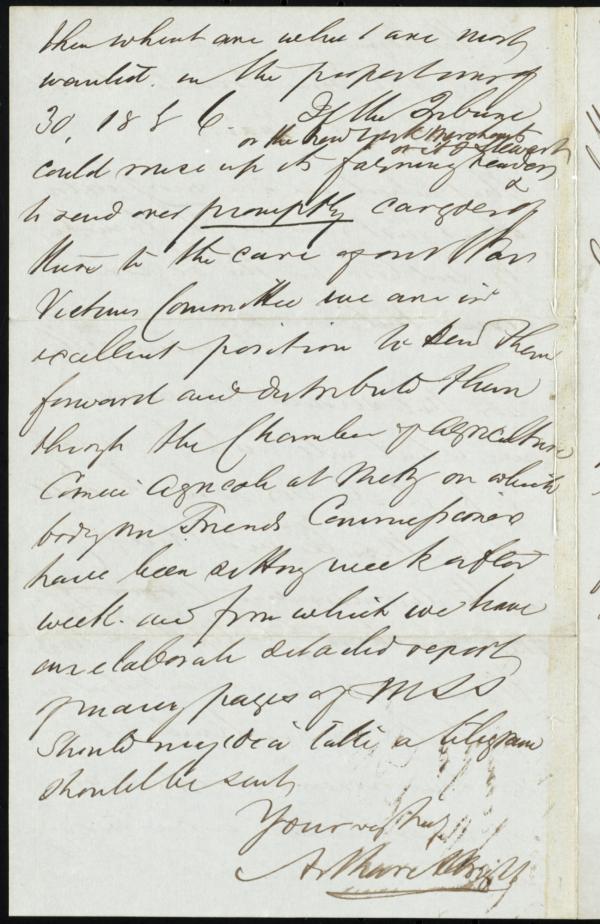 then wheat are what are most
wanted. in the proportions of
30, 18 & 6. If the Tribune
or the New York Merchants
or it & Stewart
could muse up its farming readers
&
to send over promptly cargoes of
these to the care of our War
Victims Committee we are in
excellent position to send them
forward and distribute them
through the Chamber of Agriculture
Comice Agricole at Metz on which
body our Friends Commissioners
have been sitting week after
week. and from which we have
an elaborate detailed report
of many pages of MSS
Should my idea take, a telegram
should be sent
Yours
Arthur Albright